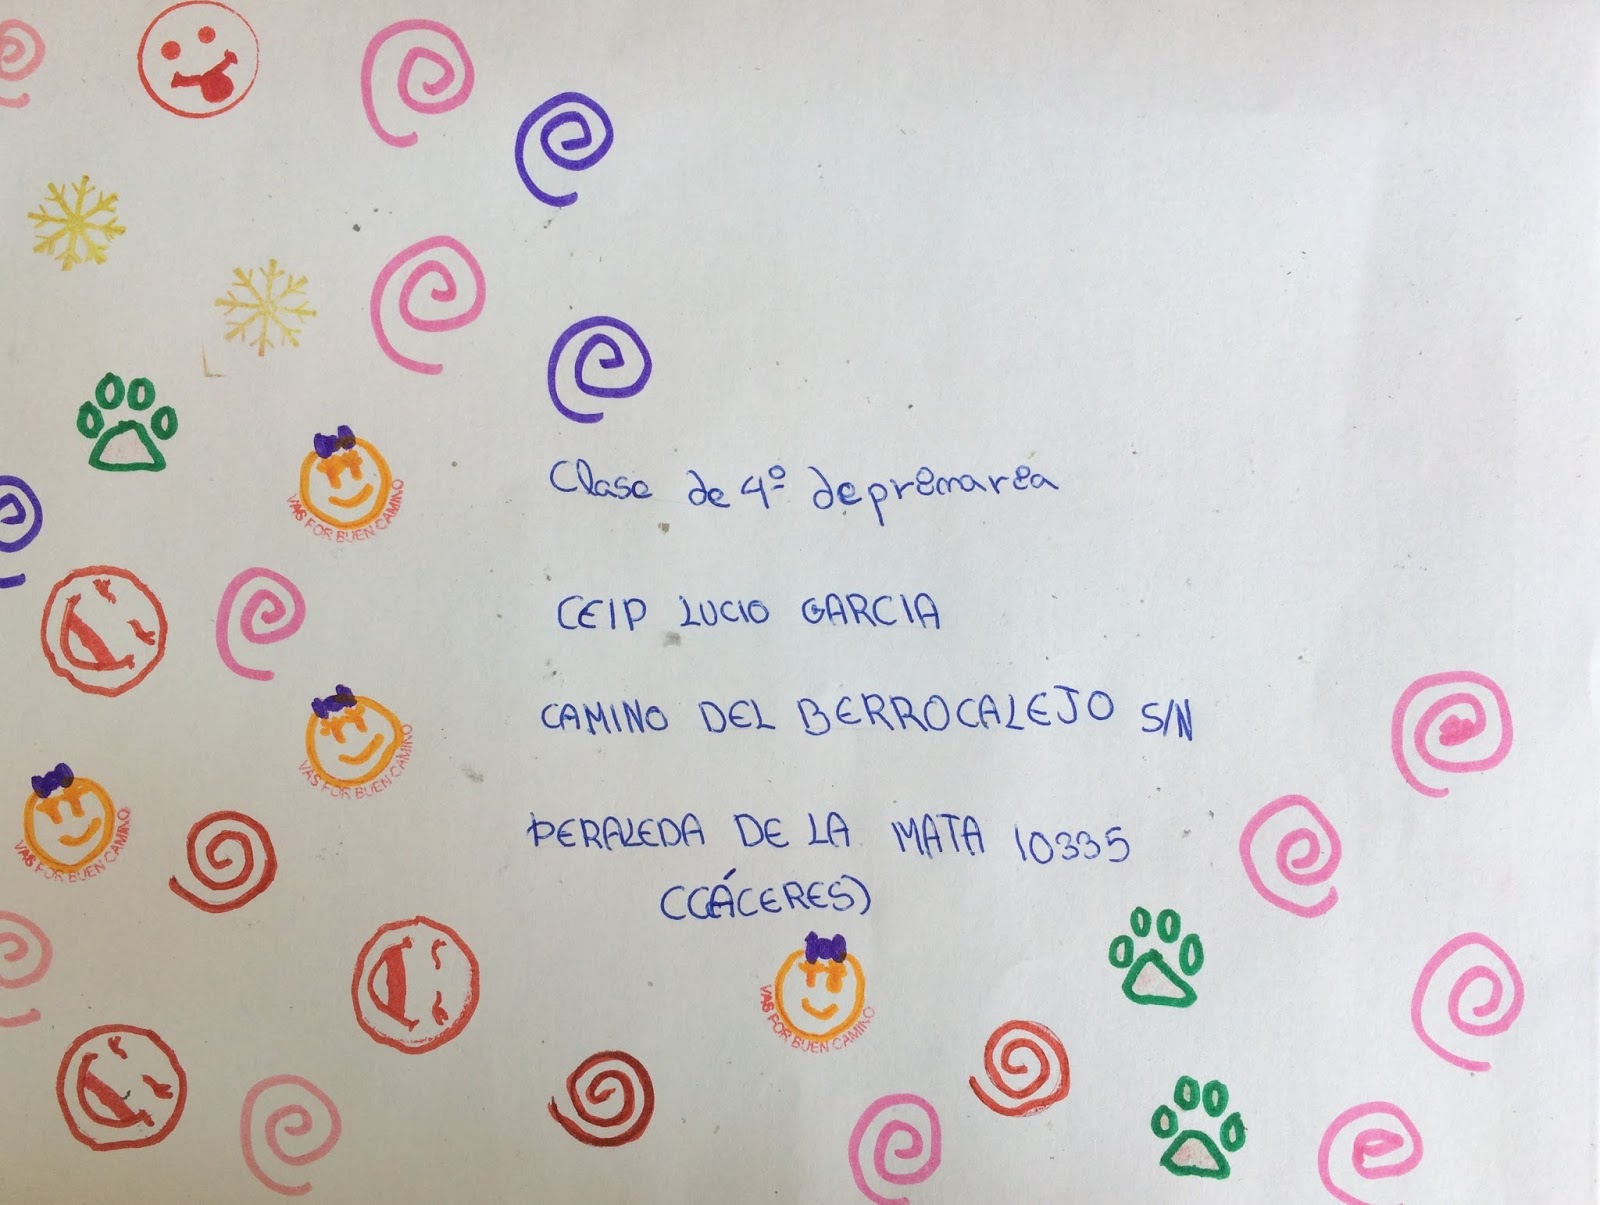 VAS FOR BUEN CAMINO
Clase de 4º de primaria
CEIP LUCIO GARCIA
VAS FOR BUEN CAMINO
CAMINO DEL BERROCALEJO S/N
VAS FOR BUEN CAMINO
PERALEDA DE LA MATA 10335
(CÁCERES)
VAS FOR BUEN CAMINO